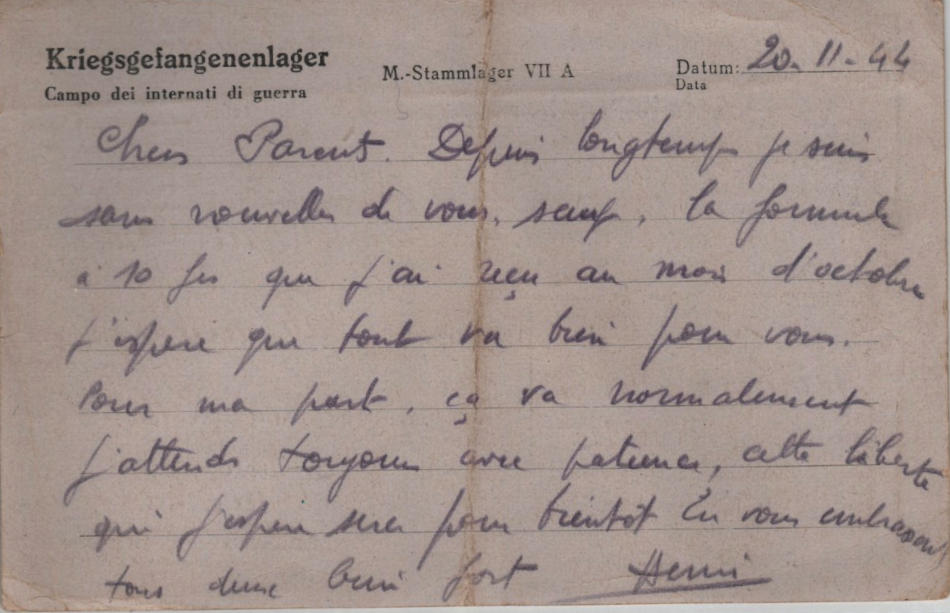 Kriegsgefangenenlager
Campo dei internati di guerra
M.-Stammlager VII A
Datum: 20-11-44
Data
Chers Parents. Depuis longtemps je suis
sans nouvelles de vous, sauf, la formule
à 10 que j'ai reçu au mois d'octobre
j'espère que tout va bien pour vous.
Pour ma part, ça va normalement
j'attends toujours avec patience, cette liberté
qui j'espère sera pour bientôt En vous embrassant
tous deux bien fort Henri